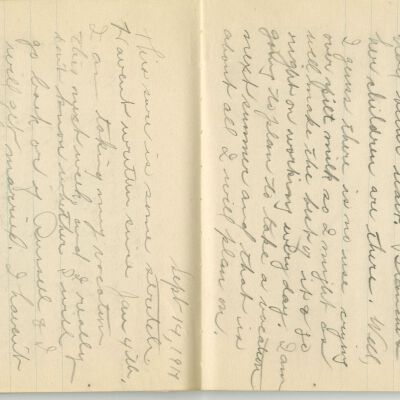 her children are there. Well,
I guess there is no use crying
over spilt milk so I might as
well make the best of it & go
right on working every day. I am
going to plan to take a vacation
next summer and that is
about all I will plan on.
Sept 14, 1919
This sure is some stretch.
Haven't written since Jan 4th.
I am taking my vacation
this next week, and I really
don't know whether I will
go back or if Russell & I
will get married. I haven't